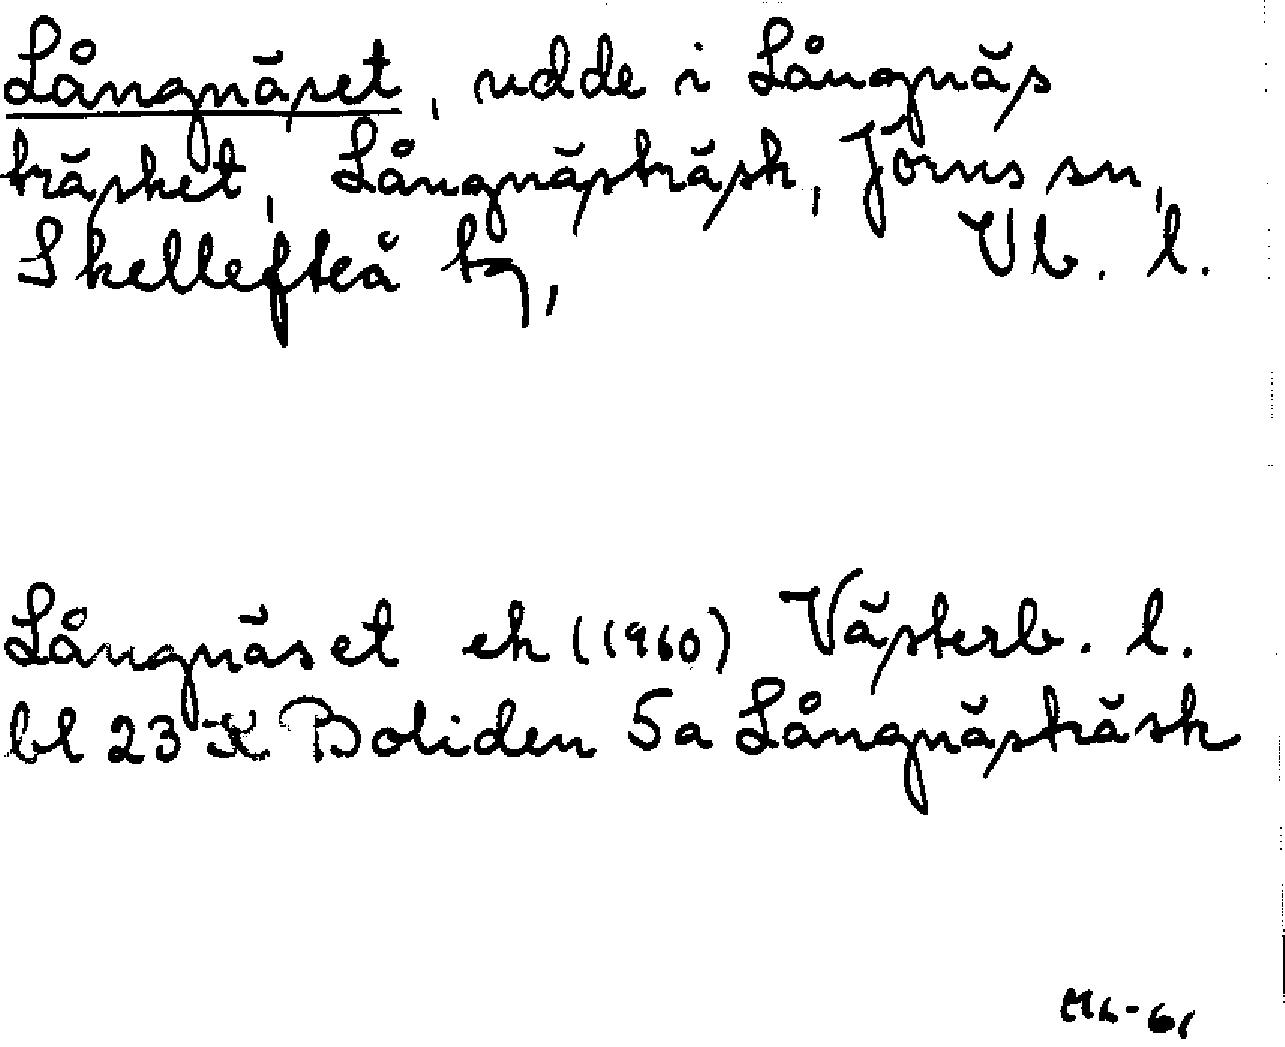 Långnäset, udde i Långnäs
träsket, Långnästräsk, Jörns sn,
Skellefteå tg, Vb. l.
Långnäset ek (1960) Västerb. l.
bl 23 K Boliden 5a Långnästräsk